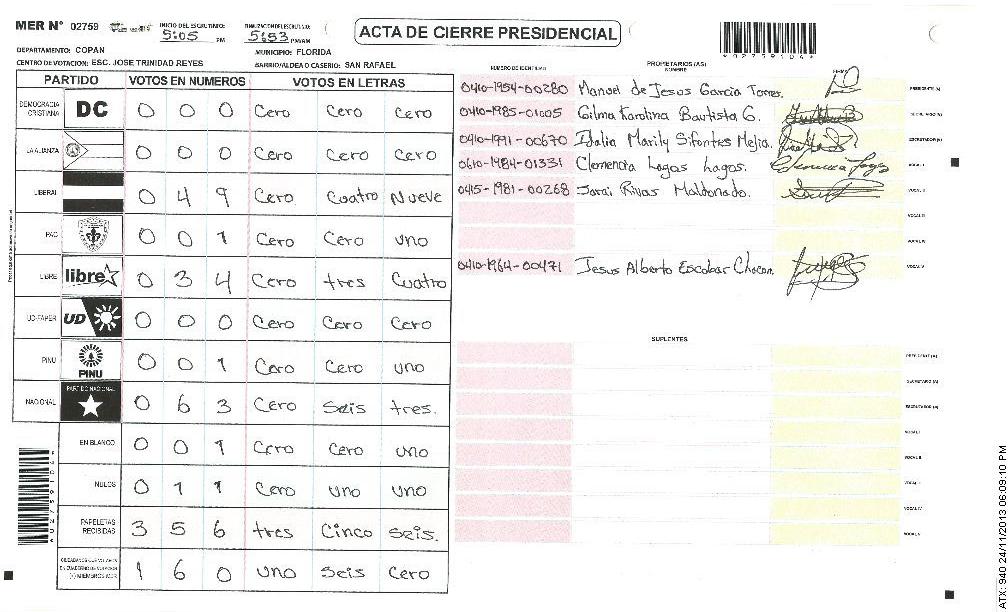 MER N° 02759
INICIO DEL ESCRUTINIO: 5:05 PM
FINALIZACION DEL ESCRUTINIO: 5:53 PM/AM
ACTA DE CIERRE PRESIDENCIAL
DEPARTAMENTO: COPAN
MUNICIPIO: FLORIDA
CENTRO DE VOTACION: ESC. JOSE TRINIDAD REYES
BARRIO/ALDEA O CASERIO: SAN RAFAEL
PARTIDO VOTOS EN NUMEROS VOTOS EN LETRAS
DEMOCRACIA CRISTIANA DC 0 0 0 Cero Cero Cero
LA ALIANZA 0 0 0 Cero Cero Cero
LIBERAL 0 4 9 Cero Cuatro Nueve
PAC 0 0 1 Cero Cero uno
LIBRE libre 0 3 4 Cero tres Cuatro
UD-FAPER UD 0 0 0 Cero Cero Cero
PINU PINU 0 0 1 Cero Cero uno
NACIONAL PARTIDO NACIONAL 0 6 3 Cero Seis tres.
EN BLANCO 0 0 1 Cero Cero uno
NULOS 0 1 1 Cero uno uno
PAPELETAS RECIBIDAS 3 5 6 tres Cinco Seis.
CIUDADANOS QUE VOTARON EN CUADERNO DE VOTACION (+) MIEMBROS MER 1 6 0 uno Seis Cero
NUMERO DE IDENTIDAD
PROPIETARIOS (AS)
NOMBRE
FIRMA
0410-1954-00280 Manuel de Jesus Garcia Torres. PRESIDENTE (A)
0410-1985-01005 Gilma Karolina Bautista G. SECRETARIO (A)
0410-1991-00670 Idalia Marily Sifontes Mejia. ESCRUTADOR (A)
0610-1984-01331 Clemencia Lagos Lagos. VOCAL I
0415-1981-00268 Sarai Rivas Maldonado. VOCAL II
VOCAL III
VOCAL IV
0410-1964-00471 Jesus Alberto Escobar Chacon VOCAL V
SUPLENTES
PRESIDENTE (A)
SECRETARIO (A)
ESCRUTADOR (A)
VOCAL I
VOCAL II
VOCAL III
VOCAL IV
VOCAL V
ATX: 940 24/11/2013 06:09:10 PM